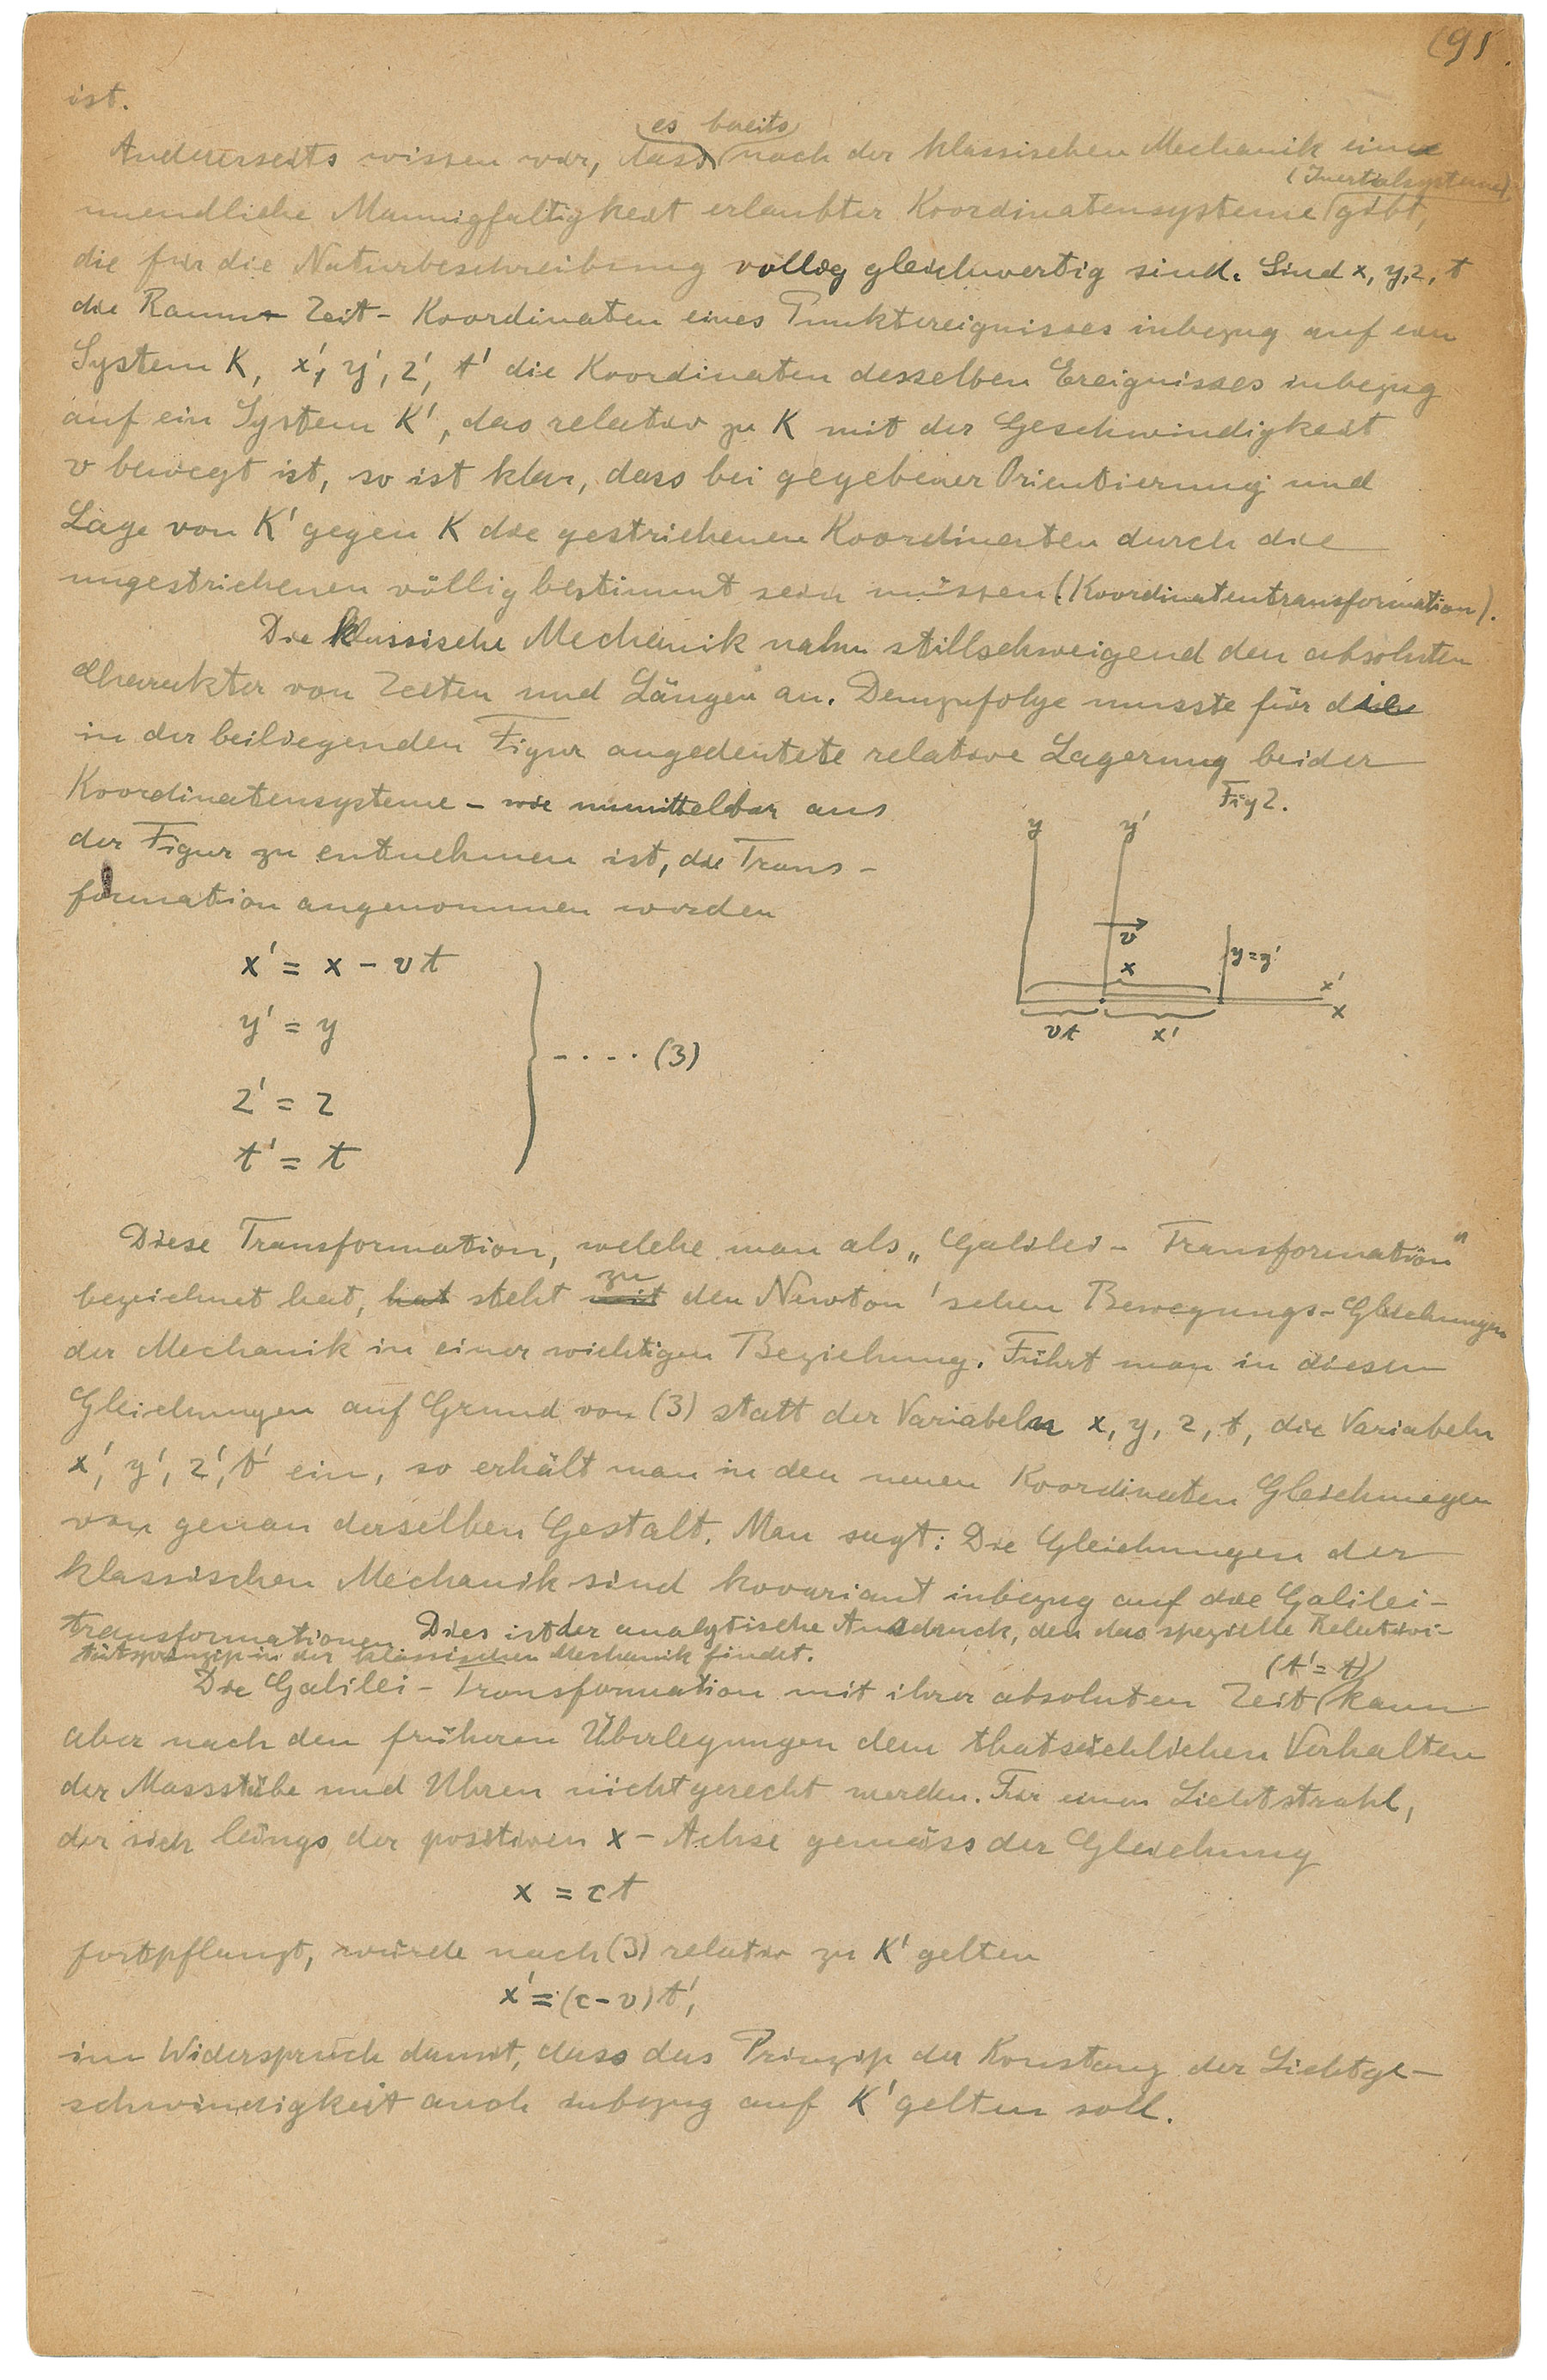 (9)
ist.
Andererseits wissen wir, dass es bereits nach der klassischen Mechanik eine
unendliche Mannigfaltigkeit erlaubter Koordinatensysteme (Inertialsysteme) gibt,
die für die Naturbeschreibung völlig gleichwertig sind. Sind x, y, z, t
die Raum- Zeit- Koordinaten eines Punktereignisses inbezug auf ein
System K, x', y', z', t' die Koordinaten desselben Ereignisses inbezug
auf ein System K', das relativ zu K mit der Geschwindigkeit
v bewegt ist, so ist klar, dass bei gegebener Orientierung und
Lage von K' gegen K die gestrichenen Koordinaten durch die
ungestrichenen völlig bestimmt sein müssen (Koordinatentransformation).
Die klassische Mechanik nahm stillschweigend den absoluten
Charakter von Zeiten und Längen an. Demzufolge musste für die
in der beiliegenden Figur angedeutete relative Lagerung beider
Koordinatensysteme - wie unmittelbar aus
der Figur zu entnehmen ist, die Trans-
formation angenommen werden
Fig 2.
y y'
v
x
y = y'
x'
x
vt x'
x' = x - vt
y' = y
z' = z
t' = t
- . . . . (3)
Diese Transformation, welche man als „Galilei- Transformation"
bezeichnet hat, hat steht mit zu den Newton'schen Bewegungs-Gleichungen
der Mechanik in einer wichtigen Beziehung. Führt man in diesen
Gleichungen auf Grund von (3) statt der Variabeln x, y, z, t, die Variabeln
x', y', z', t' ein, so erhält man in den neuen Koordinaten Gleichungen
von genau derselben Gestalt. Man sagt: Die Gleichungen der
klassischen Mechanik sind kovariant inbezug auf die Galilei-
transformationen. Dies ist der analytische Ausdruck, den das spezielle Relativi-
tätsprinzip in der klassischen Mechanik findet.
Die Galilei- Transformation mit ihrer absoluten Zeit (t' = t) kann
aber nach den früheren Überlegungen dem thatsächlichen Verhalten
der Massstäbe und Uhren nicht gerecht werden. Für einen Lichtstrahl,
der sich längs der positiven x- Achse gemäss der Gleichung
x = ct
fortpflanzt, würde nach (3) relativ zu K' gelten
x' = (c - v) t',
im Widerspruch damit, dass das Prinzip der Konstanz der Lichtge-
schwindigkeit auch inbezug auf K' gelten soll.